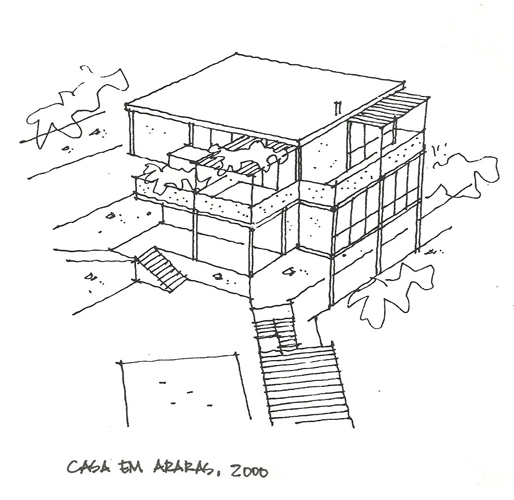 CASA EM ARARAS, 2000